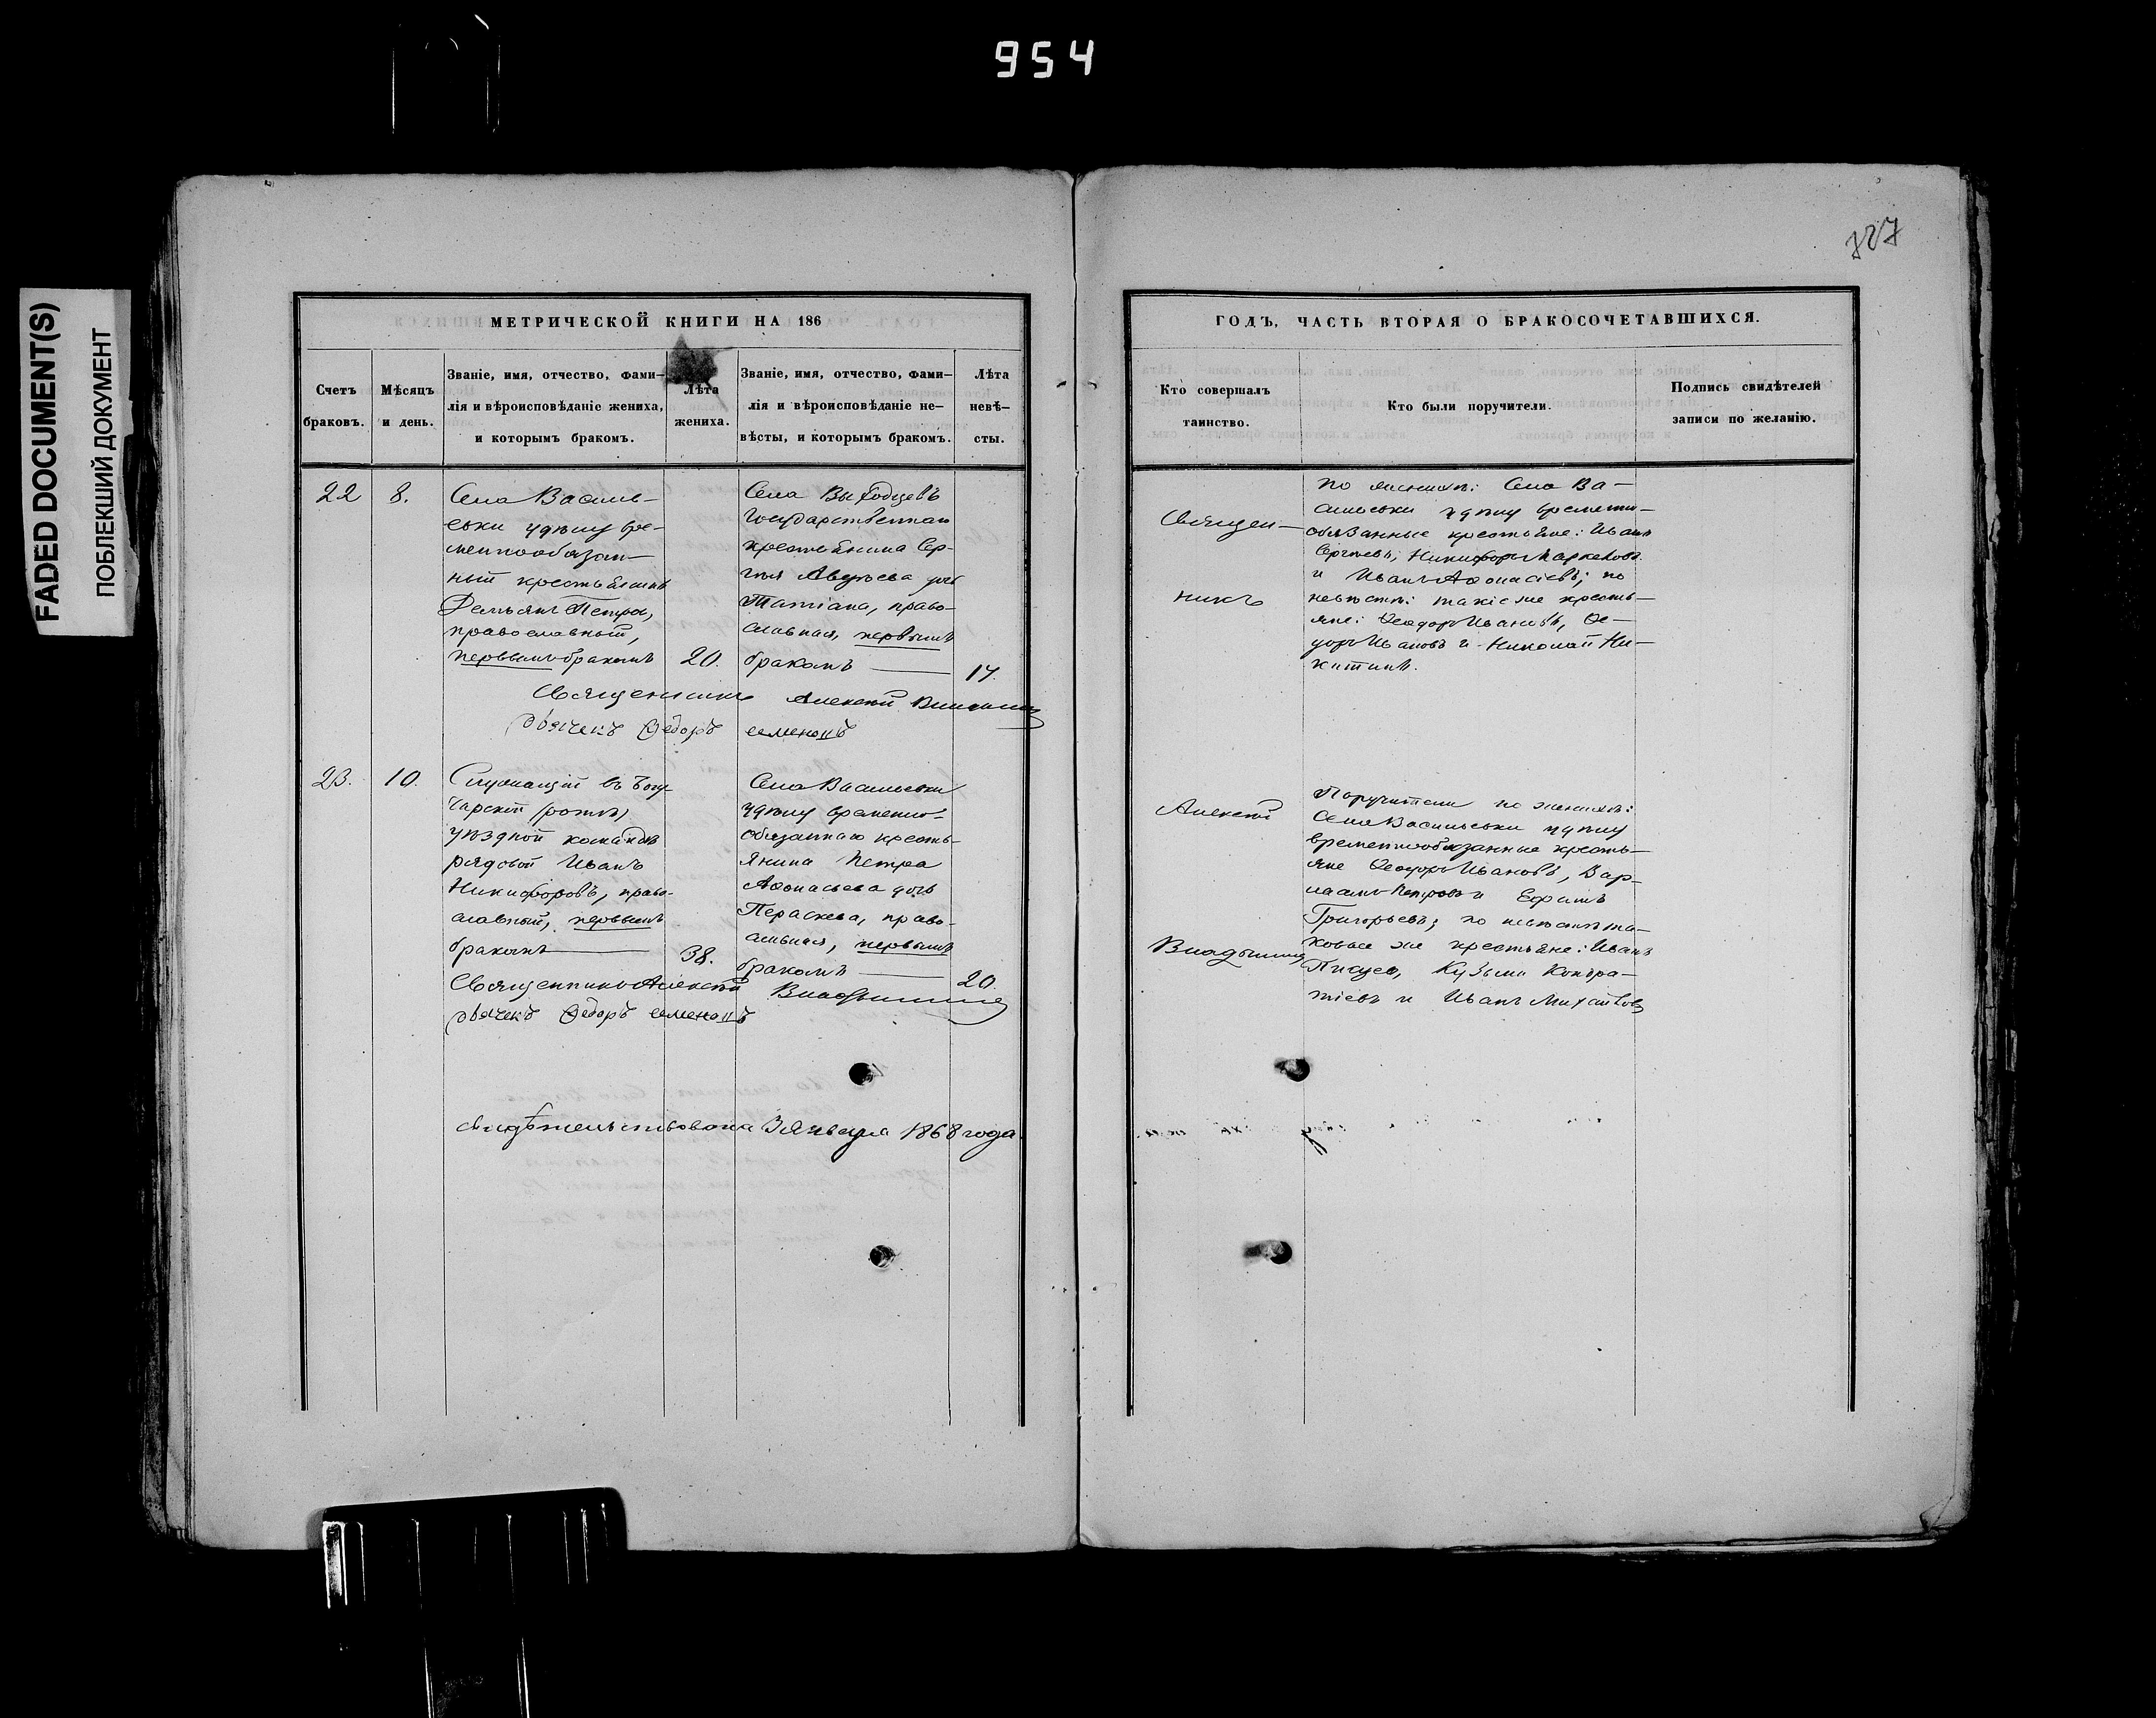 954
FADED DOCUMENT(S)
ПОБЛЕКШИЙ ДОКУМЕНТ
МЕТРИЧЕСКОЙ КНИГИ НА 186
Счетъ
браковъ.
Мѣсяцъ
и день.
Званіе, имя, отчество, фами-
лія и вѣроисповѣданіе жениха,
и которымъ бракомъ.
Лѣта
жениха.
Званіе, имя, отчество, фами-
лія и вѣроисповѣданіе не-
вѣсты, и которымъ бракомъ.
Лѣта
невѣ-
сты.
22
8.
Села Василь-
евки
временнообязан-
ный крестьянинъ
Демьянъ Петровъ,
православный,
первымъ бракомъ
20.
Села
Государственнаго
крестьянина Сер-
гѣя дочь
Татіана, право-
славная, первымъ
бракомъ
17.
Священникъ Алексѣй
Дьячекъ Ѳедоръ Семеновъ
23.
10.
Служащій въ Богу-
чарской (ротѣ)
уѣздной командѣ
рядовой Иванъ
Никифоровъ, право-
славный, первымъ
бракомъ
38.
Села Васильевки
временно-
обязаннаго кресть-
янина Петра
Аѳонасьева дочь
Пераскева, право-
славная, первымъ
бракомъ
20.
Священникъ Алексѣй
Дьячекъ Ѳедоръ Семеновъ
свидѣтельствована 3 Января 1868 года
727
ГОДЪ, ЧАСТЬ ВТОРАЯ О БРАКОСОЧЕТАВШИХСЯ.
Кто совершалъ
таинство.
Кто были поручители.
Подпись свидѣтелей
записи по желанію.
Священ-
никъ
Алексѣй
По женихѣ: Села Ва-
сильевки временно-
обязанные крестьяне: Иванъ
Сергѣевъ, Никифоръ Маркеловъ
и Иванъ Аѳонасіевъ; по
невѣстѣ: такіе же кресть-
яне: Ѳеодоръ Ивановъ, Ѳе-
доръ Ивановъ и Николай Ни-
китинъ.
Поручители по женихѣ:
Села Васильевки
временнообязанные кресть-
яне Ѳеодоръ Ивановъ, Вар-
лаамъ Петровъ и Ефимъ
Григорьевъ; по невѣстѣ та-
ковые же крестьяне: Иванъ
Кузьма Кондра-
тіевъ и Иванъ Михайловъ